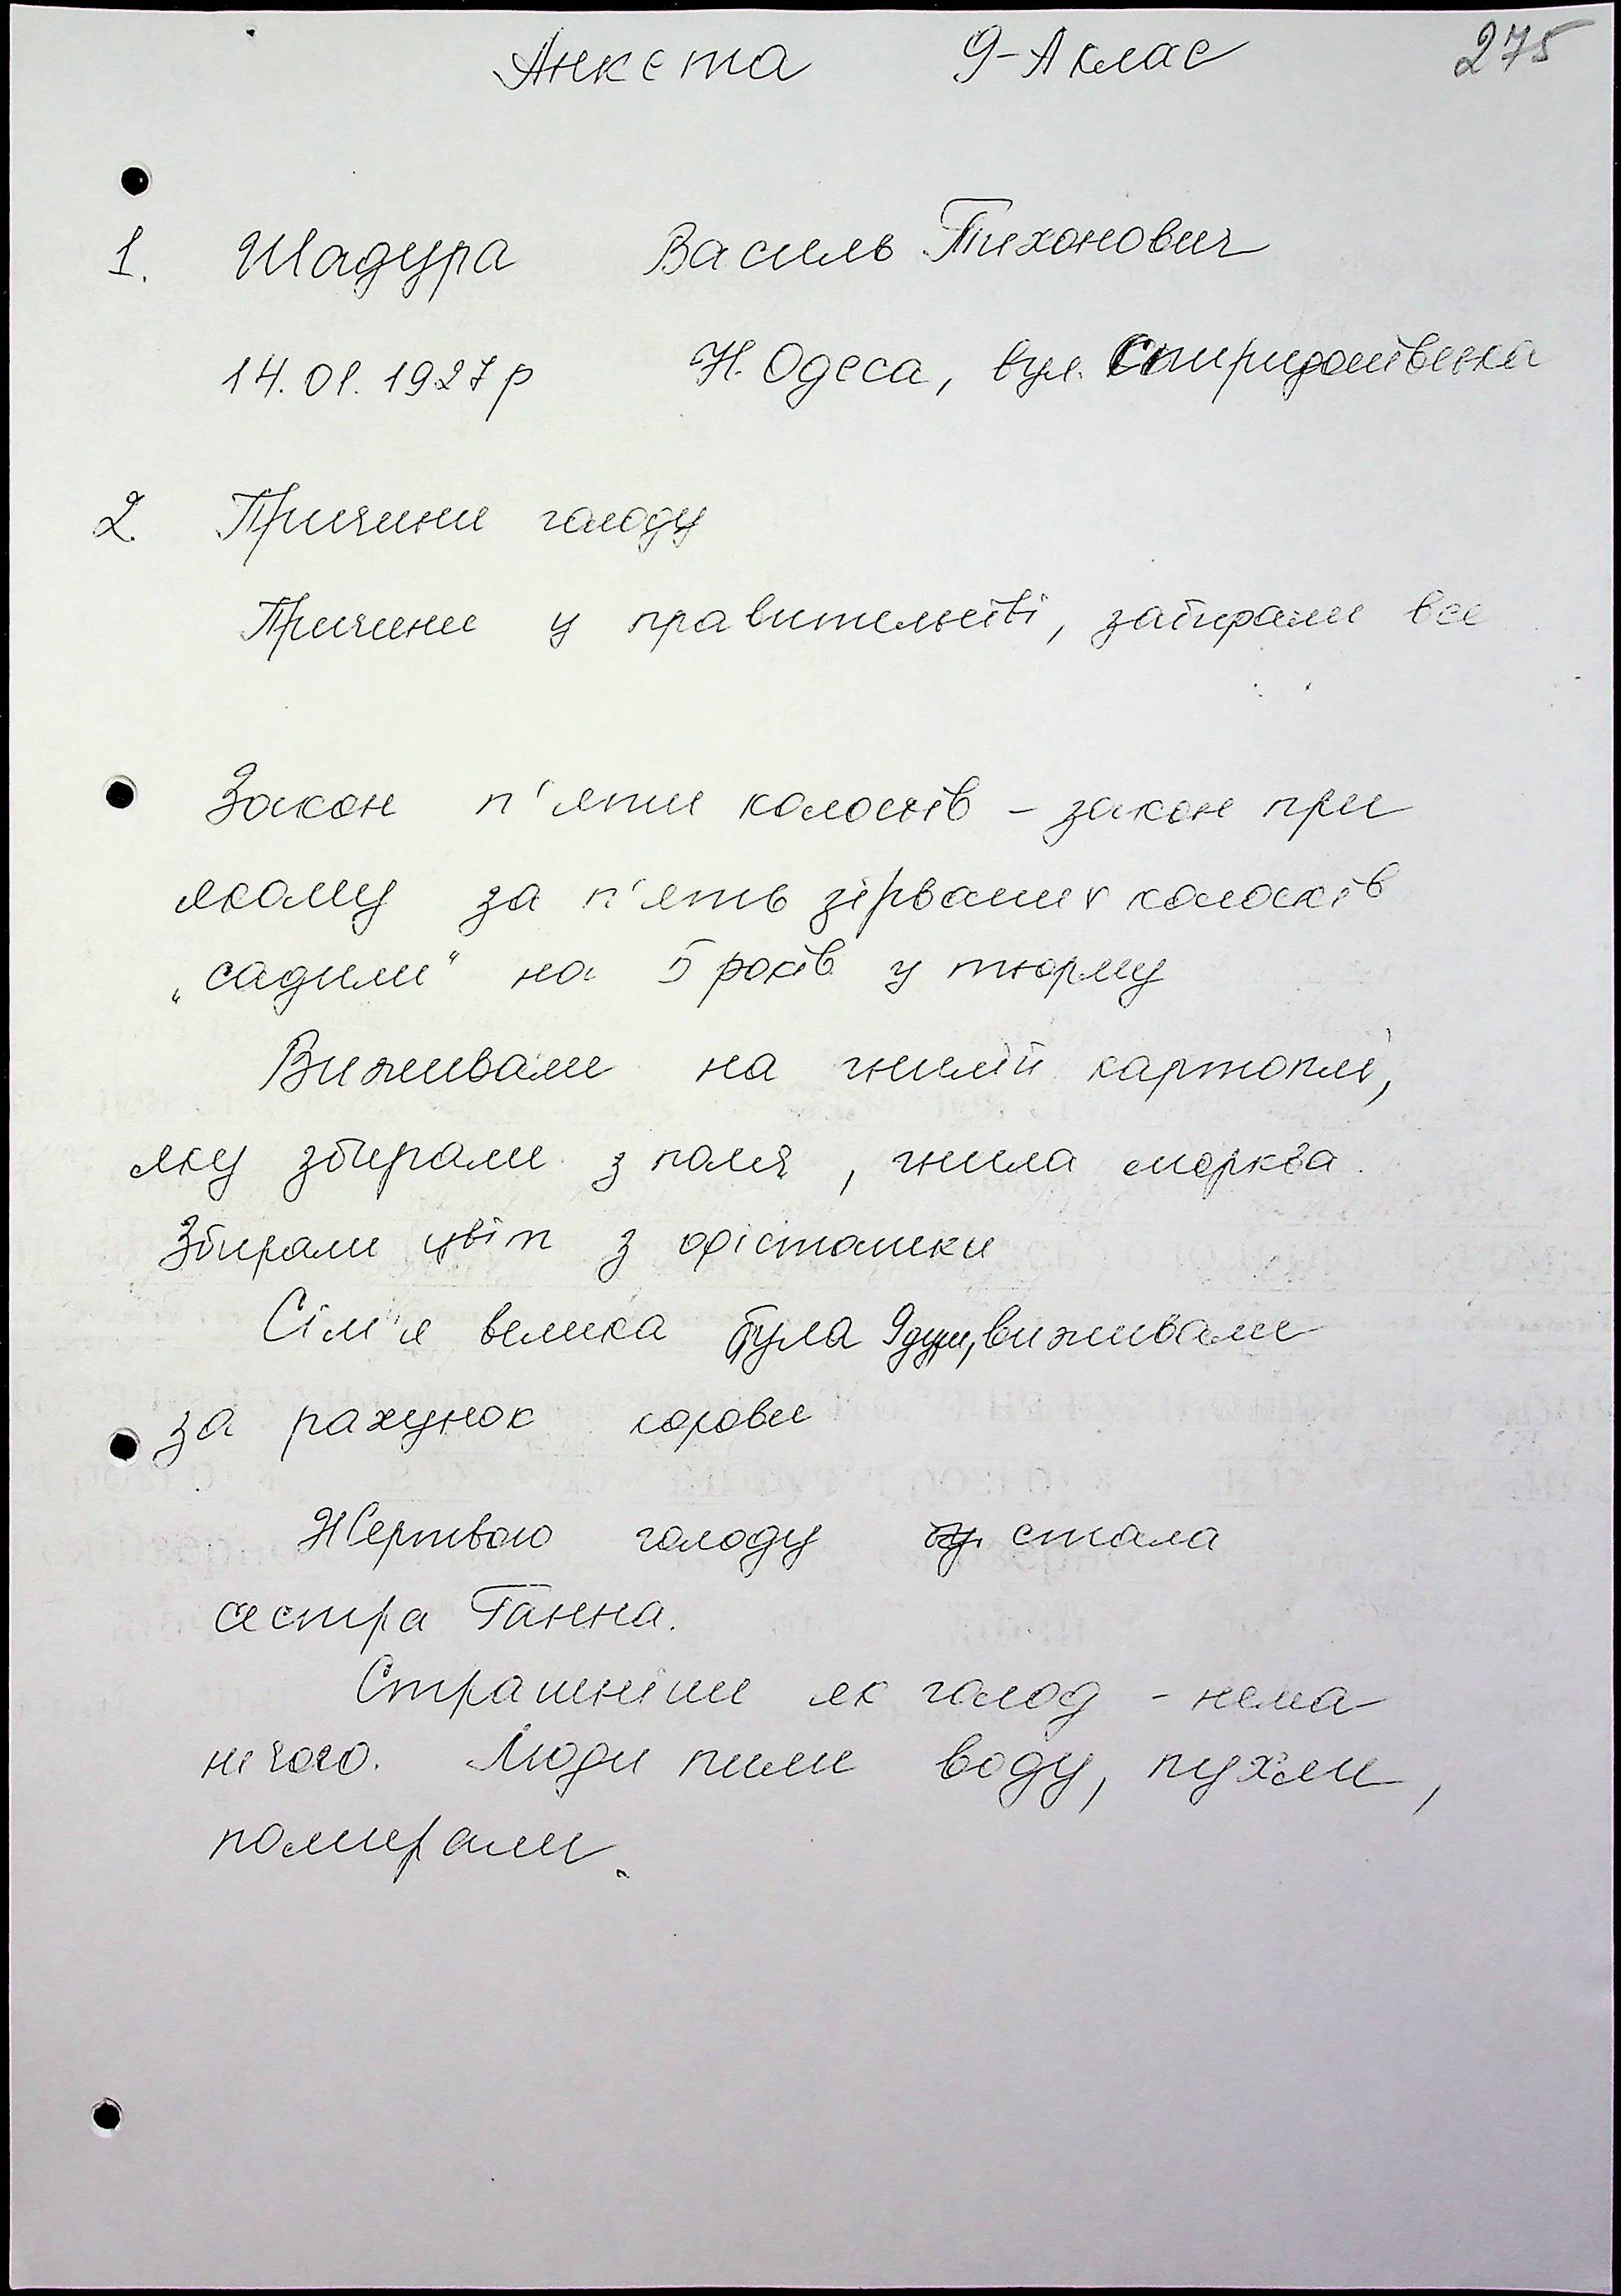 Анкета 9-А клас 275
1. Шадура Василь Тихонович
14.01.1927р Н. Одеса, вул. Спиридонівська
2. Причини голоду
Причини у правительстві, забирали все
Закон п'яти колосків – закон при
якому за п'ять зірваних колосків
„садили" на 5 років у тюрму
Виживали на гнилій картоплі,
яку збирали з поля, гнила морква.
Збирали цвіт з фісташки
Сім'я велика була 9 душ, виживали
за рахунок корови
Жертвою голоду стала
сестра Ганна.
Страшніше як голод - нема
нічого. Люди пили воду, пухли,
помирали.